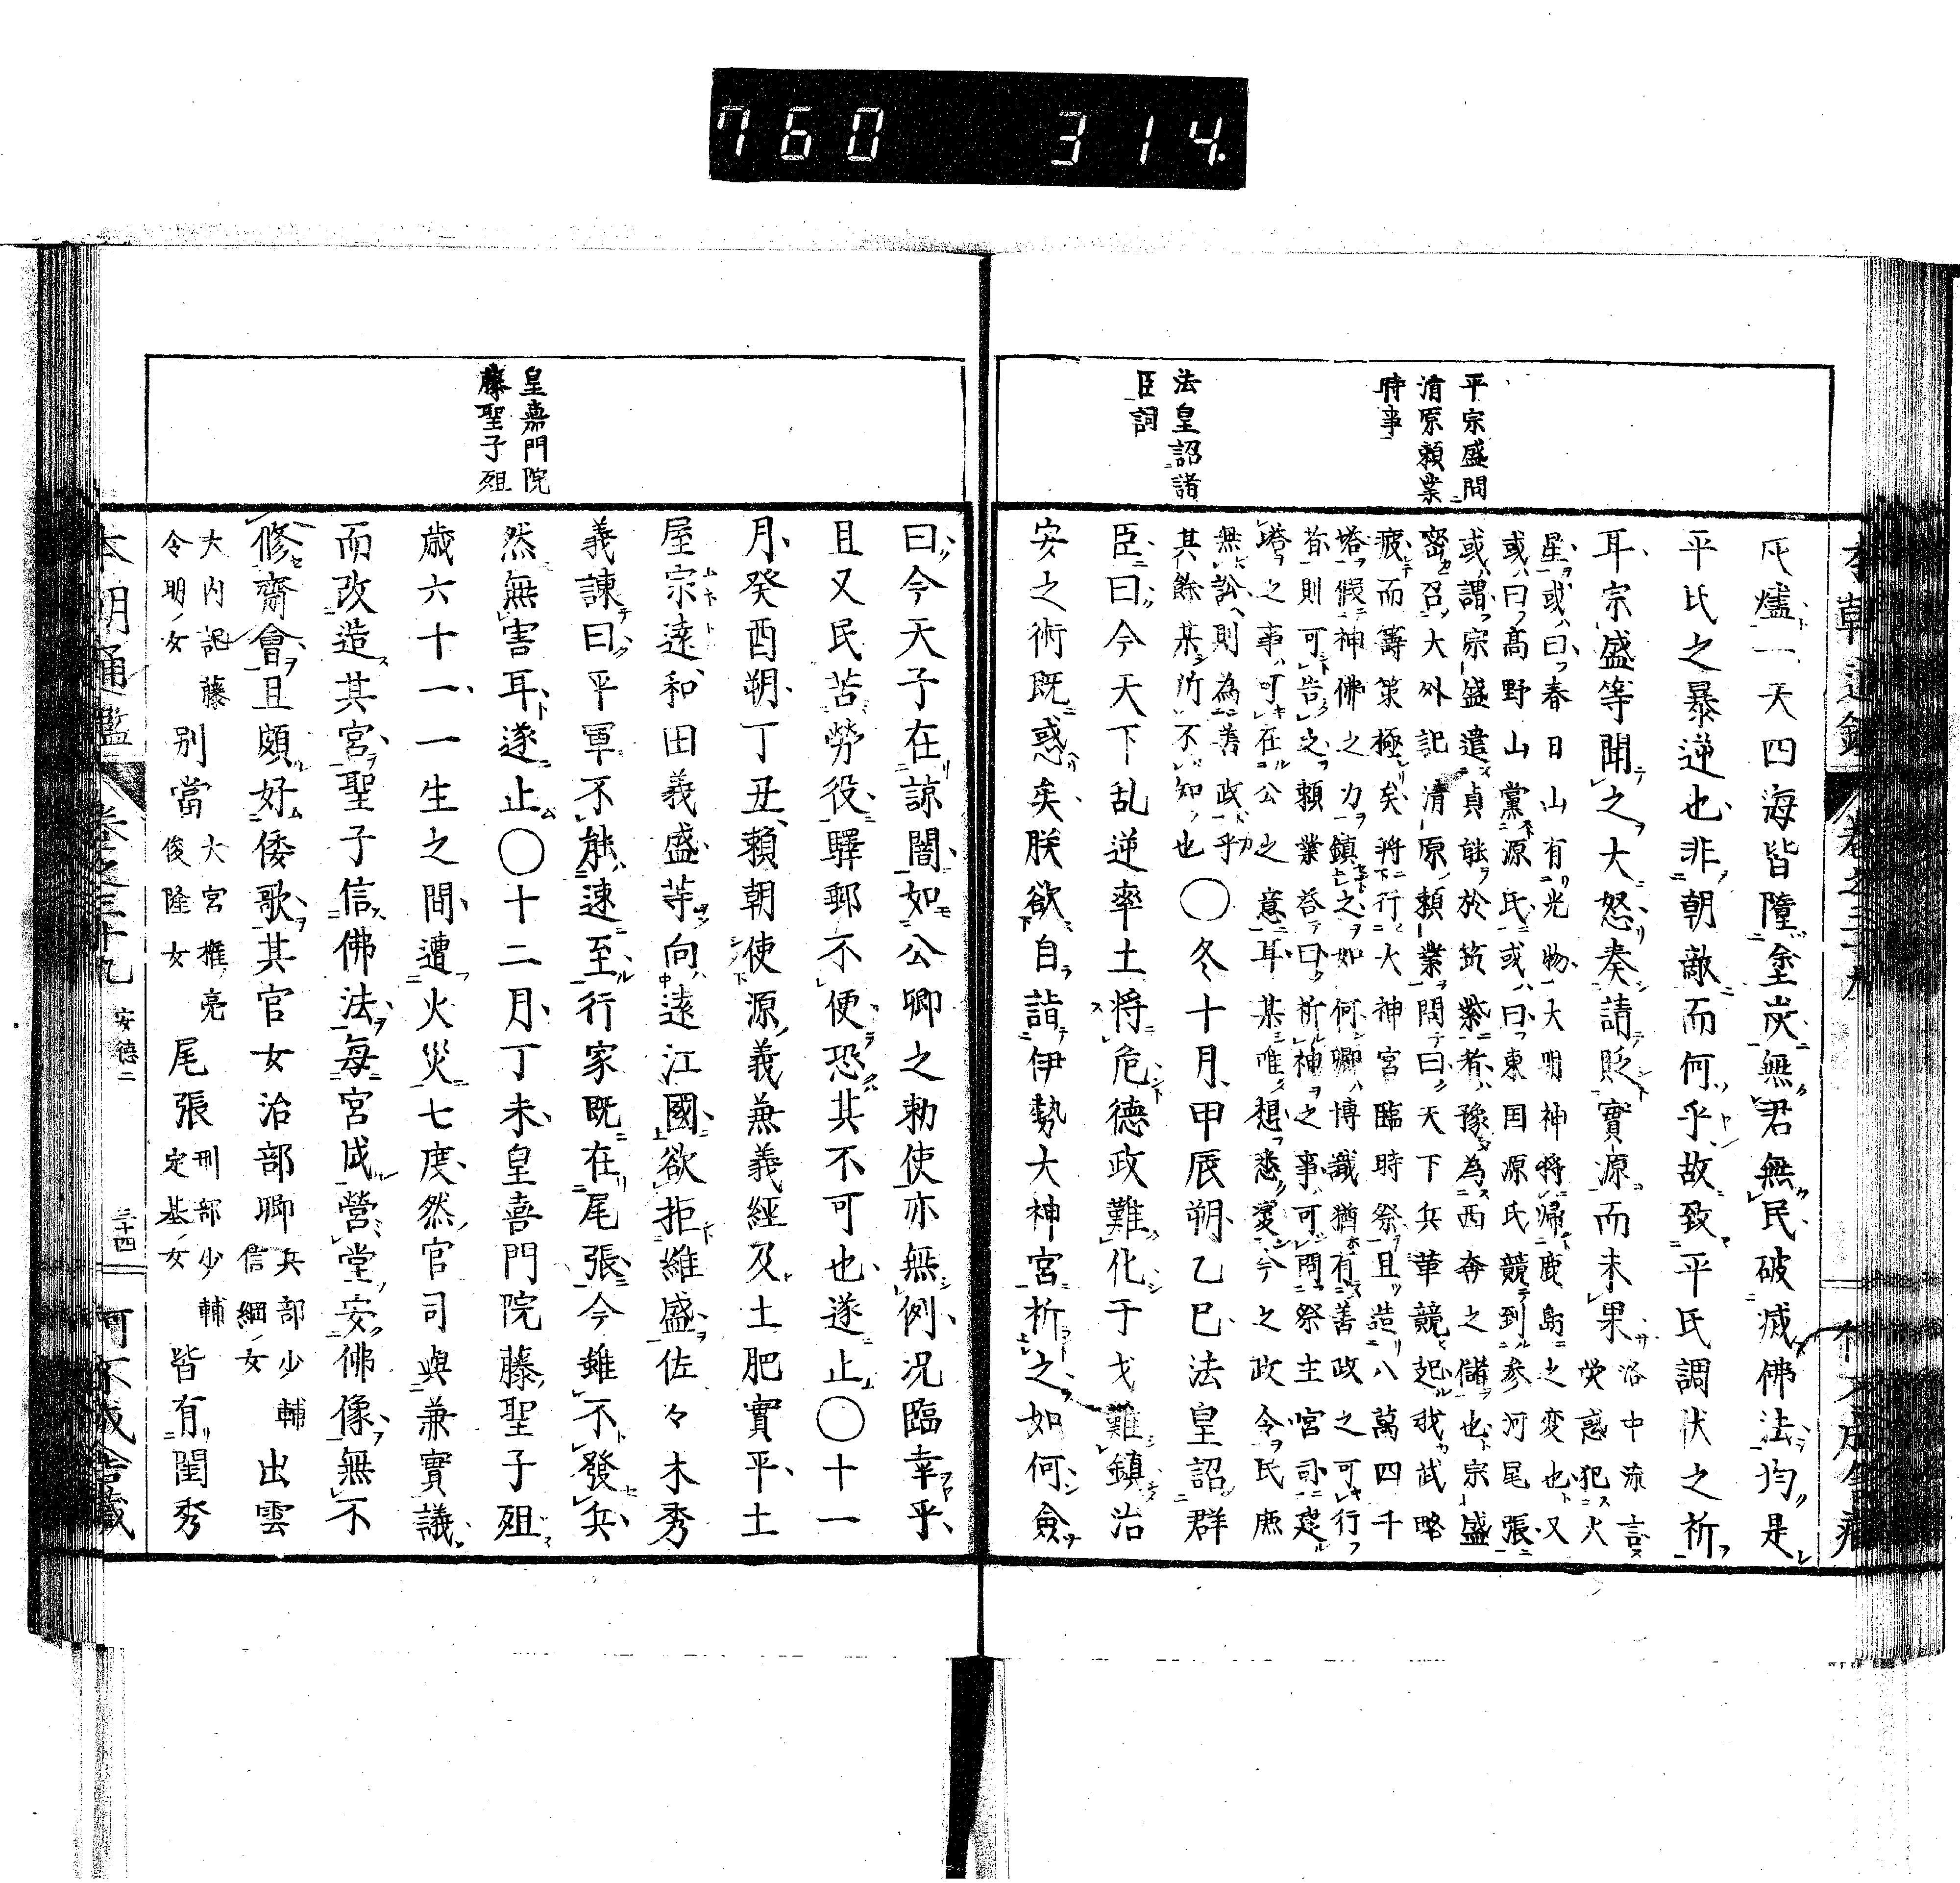 760 314
平宗盛問
清原頼業
時事
法皇詔諸
臣詞
灰燼一天四海皆墮塗炭無君無民破滅佛法均是
平氏之暴逆也非朝敵而何乎故致平氏調伏之祈
耳宗盛等聞之大怒奏請貶實源而未果
洛中流言
熒惑犯火
星或曰春日山有光物大明神將帰鹿島之変也又
或曰高野山黨源氏或曰東国源氏競到参河尾張
或謂宗盛遣貞能於筑紫者豫為西奔之儲也宗盛
密召大外記清原頼業問曰天下兵革競起我武略
疲而籌策極矣将行大神宮臨時祭且造八萬四千
塔假神佛之力鎮之如何卿博識猶有善政之可行
者則可告之頼業答曰祈神之事可問祭主宮司建
塔之事可在公之意耳某唯想悉変今之政令民庶
無訟則為善政乎
其餘某所不知也〇冬十月甲辰朔乙巳法皇詔群
臣曰今天下乱逆率土将危德政難化干戈難鎮治
安之術既惑矣朕欲自詣伊勢大神宮祈之如何僉
皇嘉門院
藤聖子殂
曰今天子在諒闇如公卿之勅使亦無例况臨幸乎
且又民苦勞役驛郵不便恐其不可也遂止〇十一
月癸酉朔丁丑頼朝使源義兼義經及土肥實平土
屋宗遠和田義盛等向遠江國欲拒維盛佐々木秀
義諫曰平軍不能速至行家既在尾張今雖不發兵
然無害耳遂止〇十二月丁未皇喜門院藤聖子殂
歳六十一一生之間遭火災七度然官司與兼實議
而改造其宮聖子信佛法每宮成營堂安佛像無不
修齋會且頗好倭歌其官女治部卿
兵部少輔
信綱女
出雲
大内記藤
令明女
別當
大宮權亮
俊隆女
尾張
刑部少輔
定基女
皆有閨秀
本朝通鑑 卷之三十九 安德二 三十四